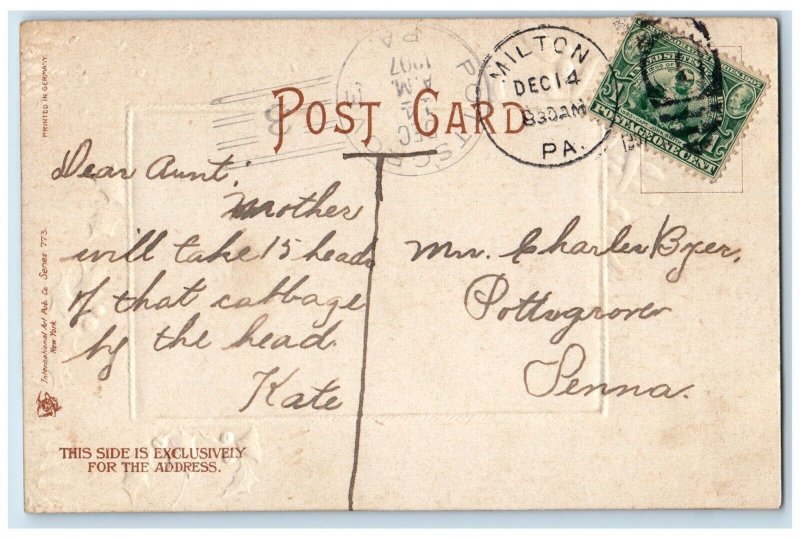 PRINTED IN GERMANY.
International Art Pub. Co. Series 773.
New York
POST CARD
POTTSGR
PA
DEC
A.M.
1907
3
MILTON
DEC 14
830AM
PA.
UNITED STATES
POSTAGE ONE CENT
Dear Aunt;
Mother
will take 15 heads
of that cabbage
by the head
Kate
Mrs. Charles Byer,
Pottsgrove
Penna.
THIS SIDE IS EXCLUSIVELY
FOR THE ADDRESS.